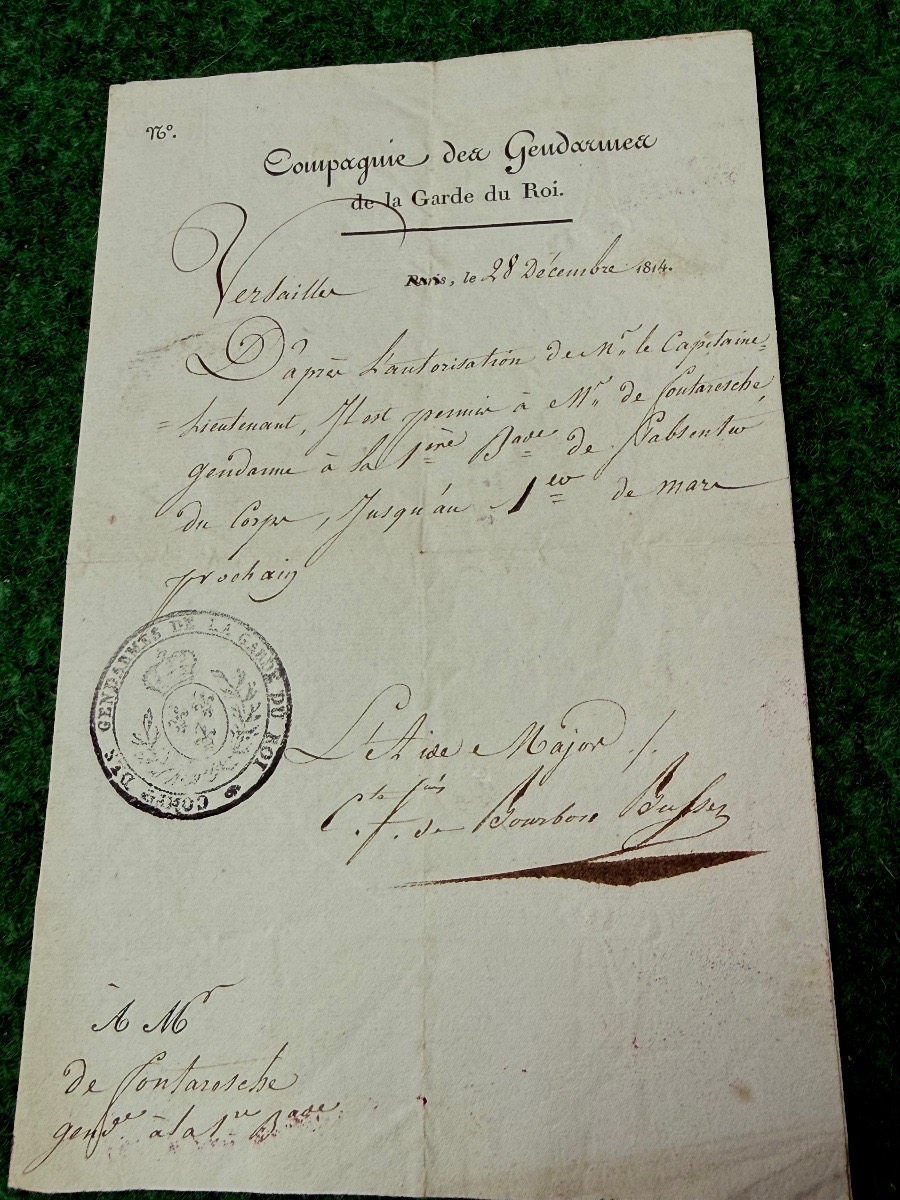 N°.
Compagnie des Gendarmes
de la Garde du Roi.
Versailles Paris, le 28 Décembre 1814.
D'après L'autorisation de Mr. le Capitaine=
=Lieutenant, Il est permis à Mr. de Fontaresche,
gendarme à la 1ère Bade de S'absenter
du Corps, Jusqu'au 1er de mars
prochain
CORPS DES GENDARMES DE LA GARDE DU ROI
L'Aide Major /.
Cte fçois de Bourbon Busset
À Mr
de Fontaresche
gende à la 1re Bade